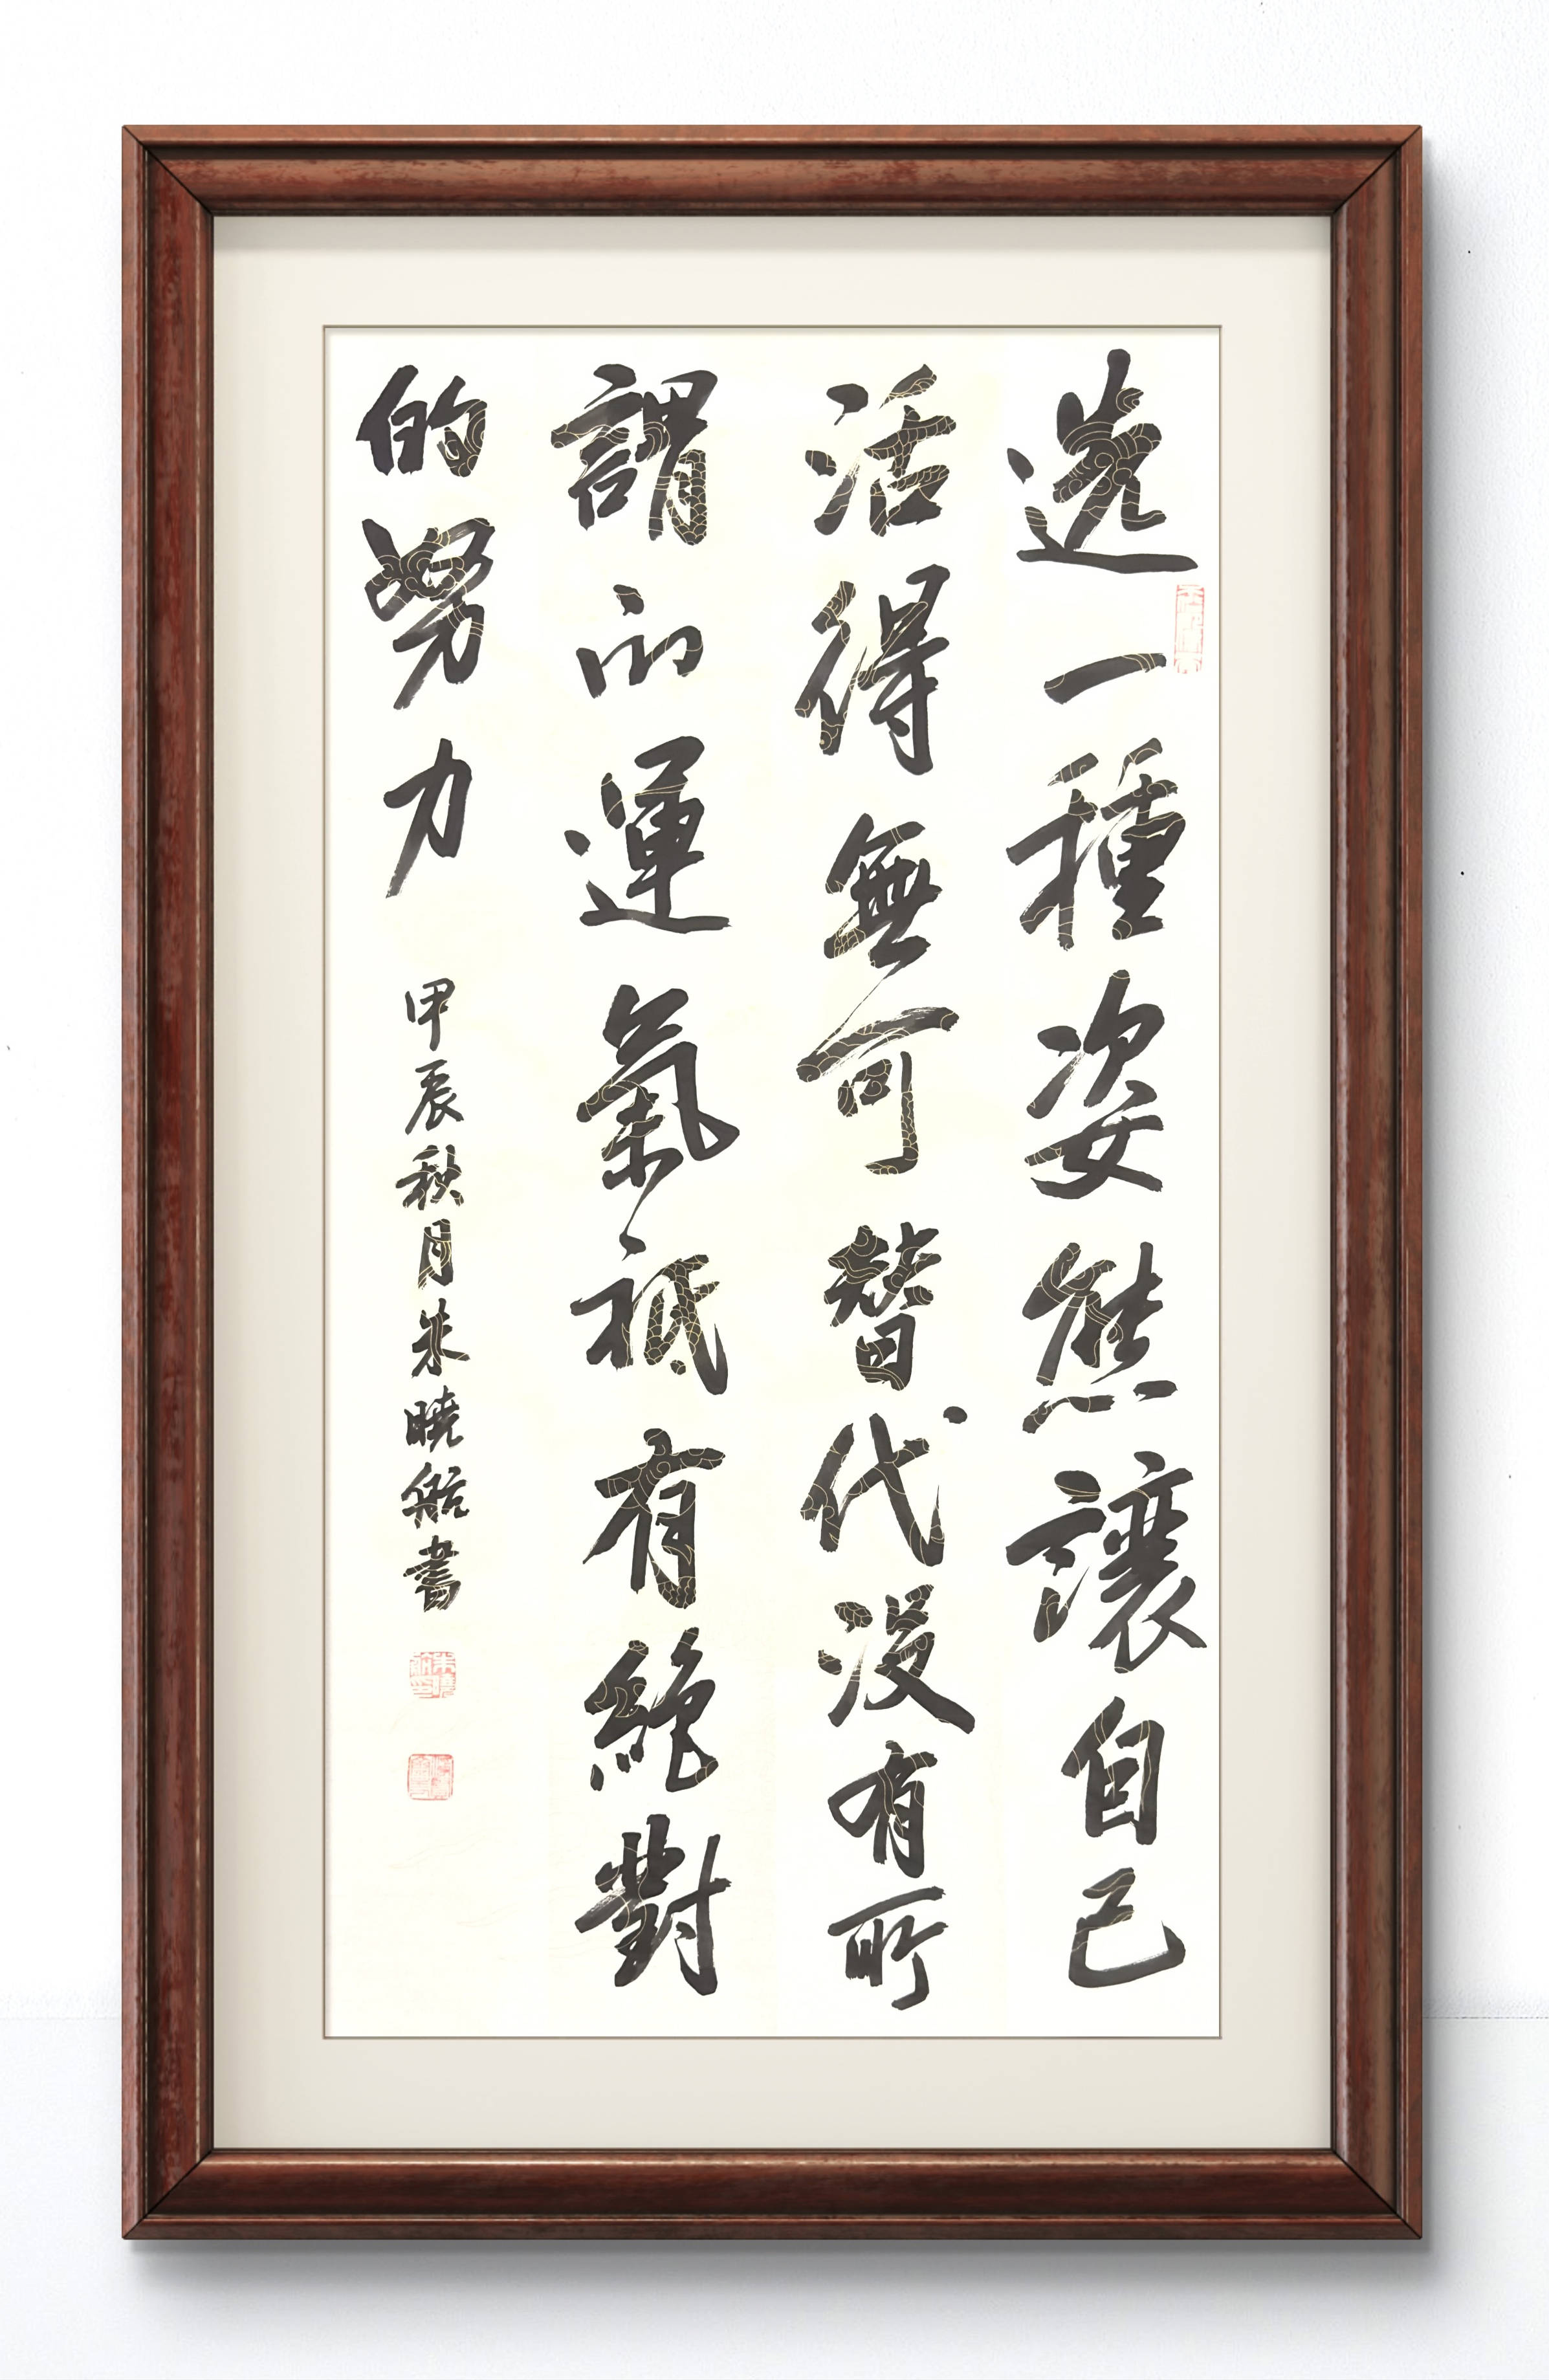 选一種姿態讓自己
活得無可替代没有所
謂的運氣祗有絶對
的努力
甲辰秋月朱曉航書